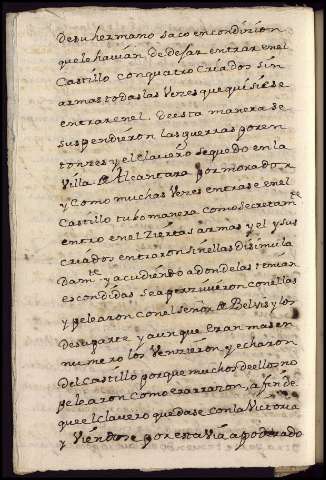 de su hermano saco en condizion
que le havian de dejar entrar en el
Castillo con quatro criados sin
armas todas las Vezes que quisiese
entrar en el. de esta manera se
suspendieron las guerras por en
tonzes y el clavero se quedo en la
Villa de Alcantara por morador
y Como muchas Vezes entrase en el
Castillo tubo manera como secretamte
entro en el Ziertas armas y el y sus
criados entraron sin ellas disimula
damte y acudiendo a donde las tenian
escondidas se aperzivieron con ellas
y pelearon con el señor de Belvis y los
de su parte y aunque eran mas en
numero los Venzieron y echaron
del Castillo porque muchos de ellos no
pelearon como era razon, a fin de
que el clavero quedase con la Victoria
y Viendose por esta Via apoderado